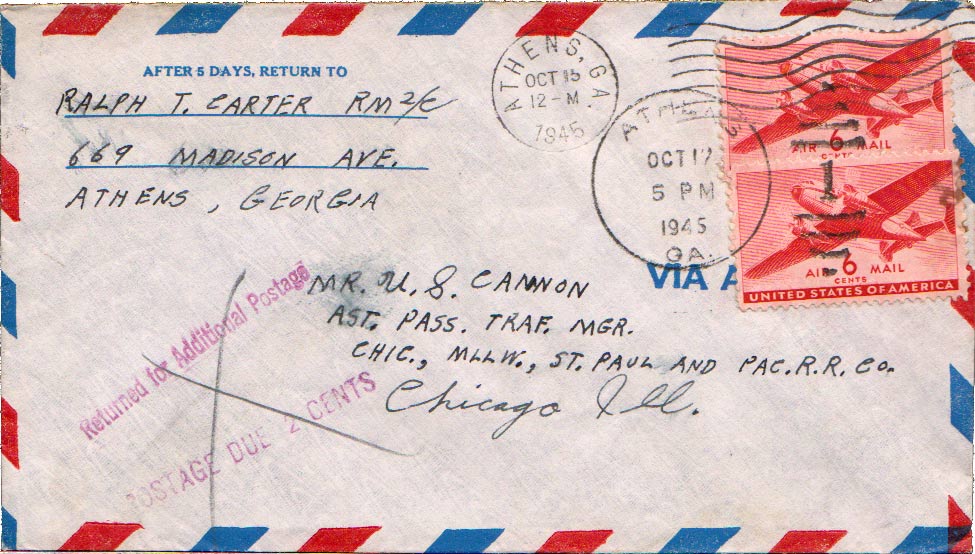 AFTER 5 DAYS, RETURN TO
RALPH T. CARTER RM 2/C
669 MADISON AVE.
ATHENS, GEORGIA
ATHENS, GA.
OCT 15
12-M
1945
ATHENS
OCT 17
5 PM
1945
GA.
1
AIR 6 MAIL
CENTS
AIR 6 MAIL
CENTS
UNITED STATES OF AMERICA
VIA A
MR. U. S. CANNON
AST. PASS. TRAF. MGR.
CHIC., MLLW., ST. PAUL AND PAC. R.R. CO.
Chicago Ill.
Returned for Additional Postage
POSTAGE DUE 2 CENTS